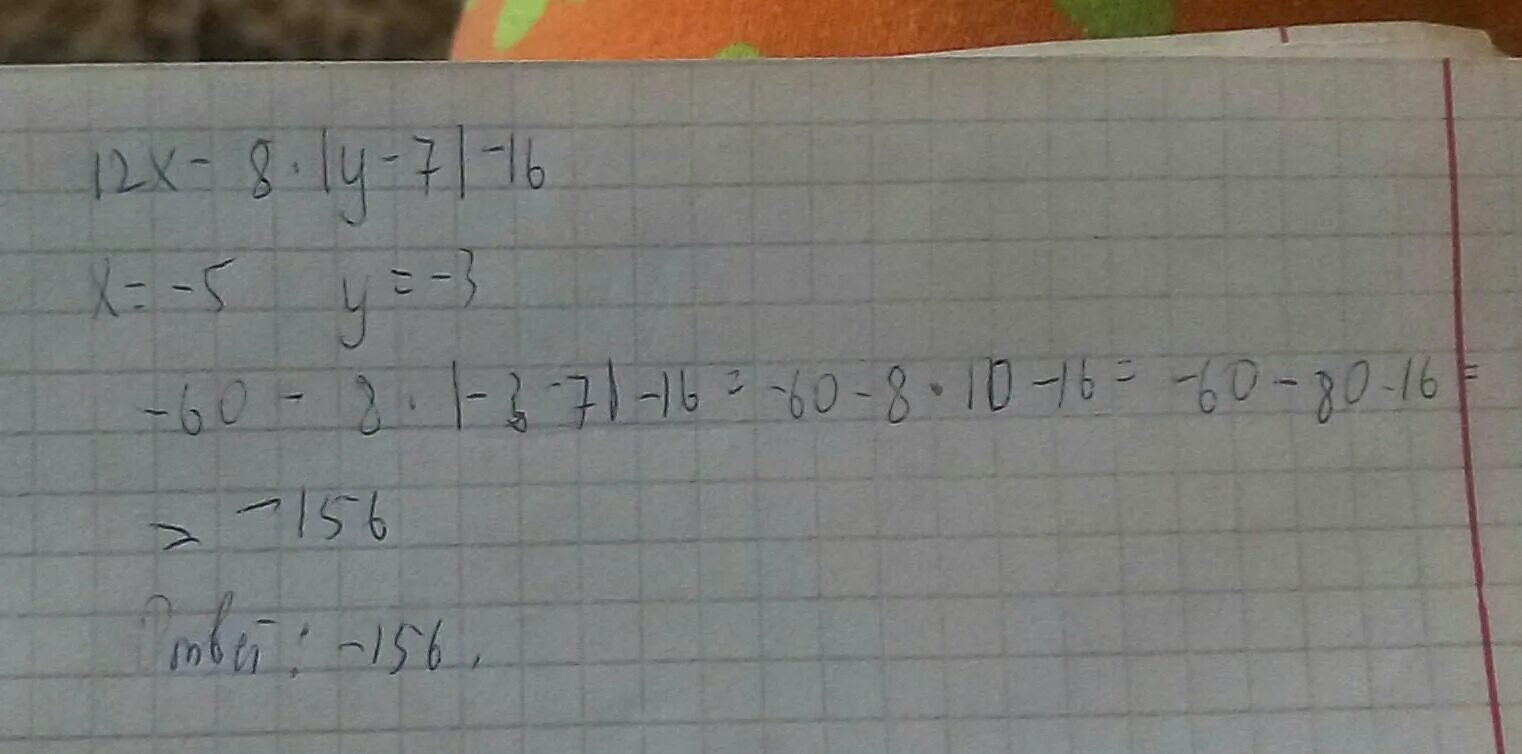 12x - 8 · |y - 7| - 16
x = -5 y = -3
-60 - 8 · |-3 - 7| - 16 = -60 - 8 · 10 - 16 = -60 - 80 - 16 =
= -156
Ответ: -156.